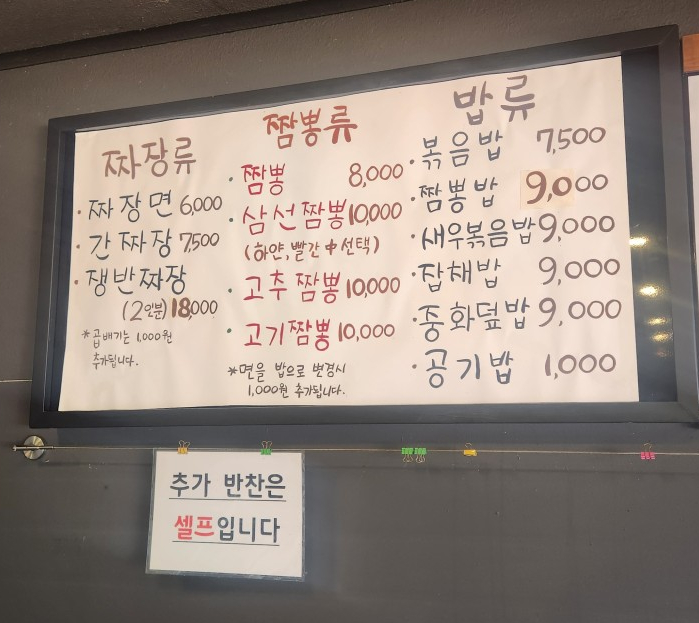 짜장류
·짜장면 6,000
·간짜장 7,500
·쟁반짜장
(2인분) 18,000
*곱배기는 1,000원
추가됩니다.
짬뽕류
·짬뽕 8,000
·삼선짬뽕 10,000
(하얀,빨간 中 선택)
·고추짬뽕 10,000
·고기짬뽕 10,000
*면을 밥으로 변경시
1,000원 추가됩니다.
밥류
·볶음밥 7,500
·짬뽕밥 9,000
·새우볶음밥 9,000
·잡채밥 9,000
·중화덮밥 9,000
·공기밥 1,000
추가 반찬은
셀프입니다